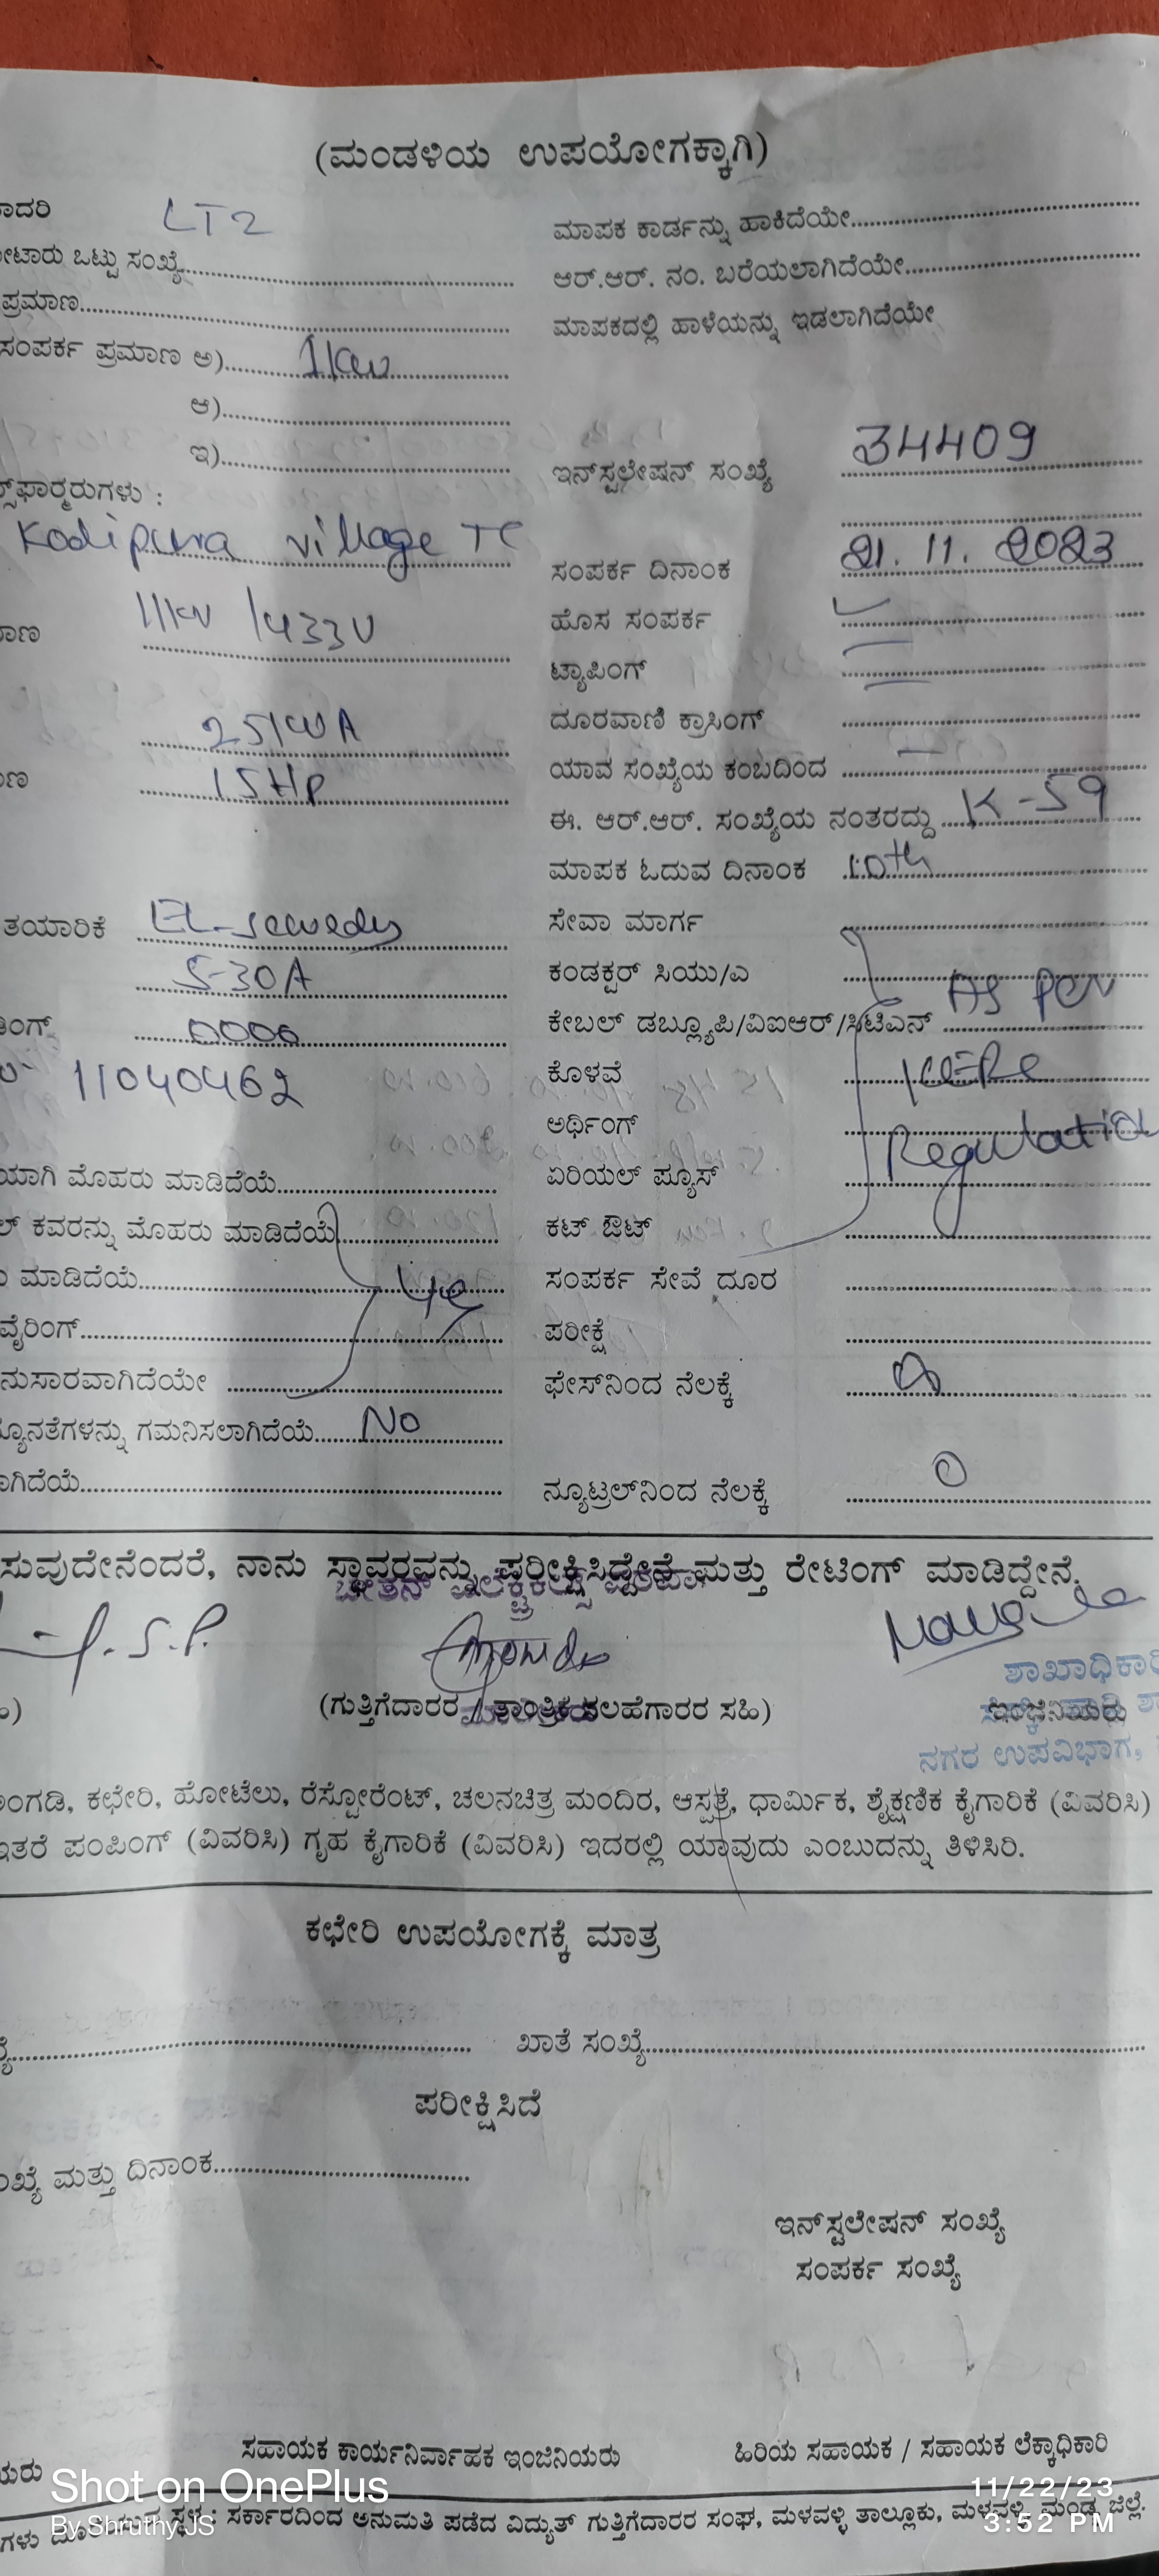 (ಮಂಡಳಿಯ ಉಪಯೋಗಕ್ಕಾಗಿ)
ಾದರಿ LT2
ಮಾಪಕ ಕಾರ್ಡನ್ನು ಹಾಕಿದೆಯೇ
ೋಟಾರು ಒಟ್ಟು ಸಂಖ್ಯೆ
ಆರ್.ಆರ್. ನಂ. ಬರೆಯಲಾಗಿದೆಯೇ
ಪ್ರಮಾಣ
ಮಾಪಕದಲ್ಲಿ ಹಾಳೆಯನ್ನು ಇಡಲಾಗಿದೆಯೇ
ಸಂಪರ್ಕ ಪ್ರಮಾಣ ಅ) 1KW
ಆ)
ಇ)
ಇನ್‌ಸ್ಟಲೇಷನ್ ಸಂಖ್ಯೆ 34409
ನ್ಸ್‌ಫಾರ್ಮರುಗಳು :
Kodipura village TC
ಸಂಪರ್ಕ ದಿನಾಂಕ 21.11.2023
ಾಣ 11KV/433V
ಹೊಸ ಸಂಪರ್ಕ
ಟ್ಯಾಪಿಂಗ್
25KVA
ದೂರವಾಣಿ ಕ್ರಾಸಿಂಗ್
ಾಣ 15HP
ಯಾವ ಸಂಖ್ಯೆಯ ಕಂಬದಿಂದ
ಈ. ಆರ್.ಆರ್. ಸಂಖ್ಯೆಯ ನಂತರದ್ದು K-59
ಮಾಪಕ ಓದುವ ದಿನಾಂಕ 10th
ತಯಾರಿಕೆ
ಸೇವಾ ಮಾರ್ಗ
5-30A
ಕಂಡಕ್ಟರ್ ಸಿಯು/ಎ As per
ಡಿಂಗ್ 0006
ಕೇಬಲ್ ಡಬ್ಲ್ಯೂಪಿ/ವಿಐಆರ್/ಸಿಟಿಎನ್
11040462
ಕೊಳವೆ KERC
ಅರ್ಥಿಂಗ್ Regulation
ಯಾಗಿ ಮೊಹರು ಮಾಡಿದೆಯೆ
ಏರಿಯಲ್ ಪ್ಯೂಸ್
ಲ್ ಕವರನ್ನು ಮೊಹರು ಮಾಡಿದೆಯೆ
ಕಟ್ ಔಟ್
ಮಾಡಿದೆಯೆ Yes
ಸಂಪರ್ಕ ಸೇವೆ ದೂರ
ವೈರಿಂಗ್
ಪರೀಕ್ಷೆ
ನುಸಾರವಾಗಿದೆಯೇ
ಫೇಸ್‌ನಿಂದ ನೆಲಕ್ಕೆ
ನ್ಯೂನತೆಗಳನ್ನು ಗಮನಿಸಲಾಗಿದೆಯೆ No
ಾಗಿದೆಯೆ
ನ್ಯೂಟ್ರಲ್‌ನಿಂದ ನೆಲಕ್ಕೆ 0
ಸುವುದೇನೆಂದರೆ, ನಾನು ಸ್ಥಾವರವನ್ನು ಪರೀಕ್ಷಿಸಿದ್ದೇನೆ ಮತ್ತು ರೇಟಿಂಗ್ ಮಾಡಿದ್ದೇನೆ.
(ಗುತ್ತಿಗೆದಾರರ / ತಾಂತ್ರಿಕ ಸಲಹೆಗಾರರ ಸಹಿ)
ಶಾಖಾಧಿಕಾರಿ
ಇಂಜಿನಿಯರು
ನಗರ ಉಪವಿಭಾಗ,
ಅಂಗಡಿ, ಕಛೇರಿ, ಹೋಟೆಲು, ರೆಸ್ಟೋರೆಂಟ್, ಚಲನಚಿತ್ರ ಮಂದಿರ, ಆಸ್ಪತ್ರೆ, ಧಾರ್ಮಿಕ, ಶೈಕ್ಷಣಿಕ ಕೈಗಾರಿಕೆ (ವಿವರಿಸಿ)
ಇತರೆ ಪಂಪಿಂಗ್ (ವಿವರಿಸಿ) ಗೃಹ ಕೈಗಾರಿಕೆ (ವಿವರಿಸಿ) ಇದರಲ್ಲಿ ಯಾವುದು ಎಂಬುದನ್ನು ತಿಳಿಸಿರಿ.
ಕಛೇರಿ ಉಪಯೋಗಕ್ಕೆ ಮಾತ್ರ
ಖಾತೆ ಸಂಖ್ಯೆ
ಪರೀಕ್ಷಿಸಿದೆ
ಂಖ್ಯೆ ಮತ್ತು ದಿನಾಂಕ
ಇನ್‌ಸ್ಟಲೇಷನ್ ಸಂಖ್ಯೆ
ಸಂಪರ್ಕ ಸಂಖ್ಯೆ
ಯರು ಸಹಾಯಕ ಕಾರ್ಯನಿರ್ವಾಹಕ ಇಂಜಿನಿಯರು ಹಿರಿಯ ಸಹಾಯಕ / ಸಹಾಯಕ ಲೆಕ್ಕಾಧಿಕಾರಿ
Shot on OnePlus
By Shruthy JS
11/22/23
3:52 PM
ಸ್ಥಳ : ಸರ್ಕಾರದಿಂದ ಅನುಮತಿ ಪಡೆದ ವಿದ್ಯುತ್ ಗುತ್ತಿಗೆದಾರರ ಸಂಘ, ಮಳವಳ್ಳಿ ತಾಲ್ಲೂಕು, ಮಳವಳ್ಳಿ, ಮಂಡ್ಯ ಜಿಲ್ಲೆ.